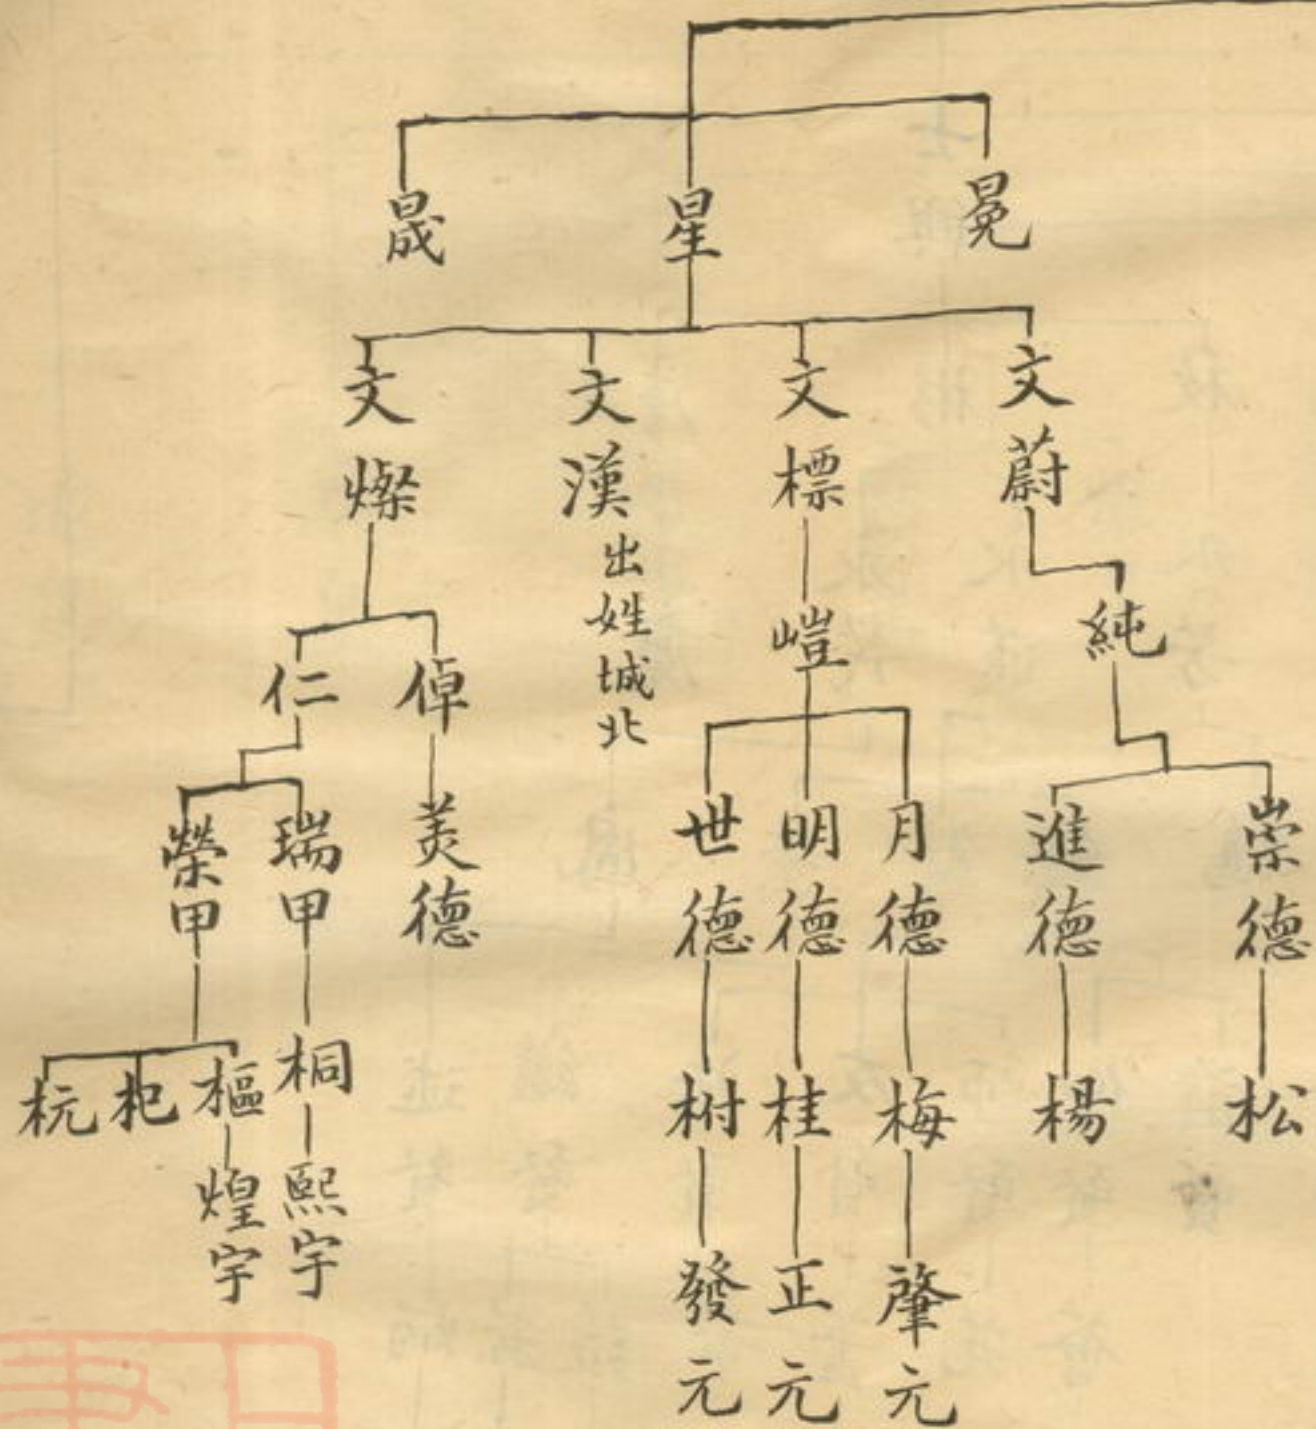 冕
星
晟
文蔚
文標
文漢出姓城北
文燦
純
嵦
倬
仁
崇德
進德
月德
明德
世德
美德
瑞甲
榮甲
松
楊
梅
桂
樹
桐
樞
杞
杬
肇元
正元
發元
熙宇
煌宇